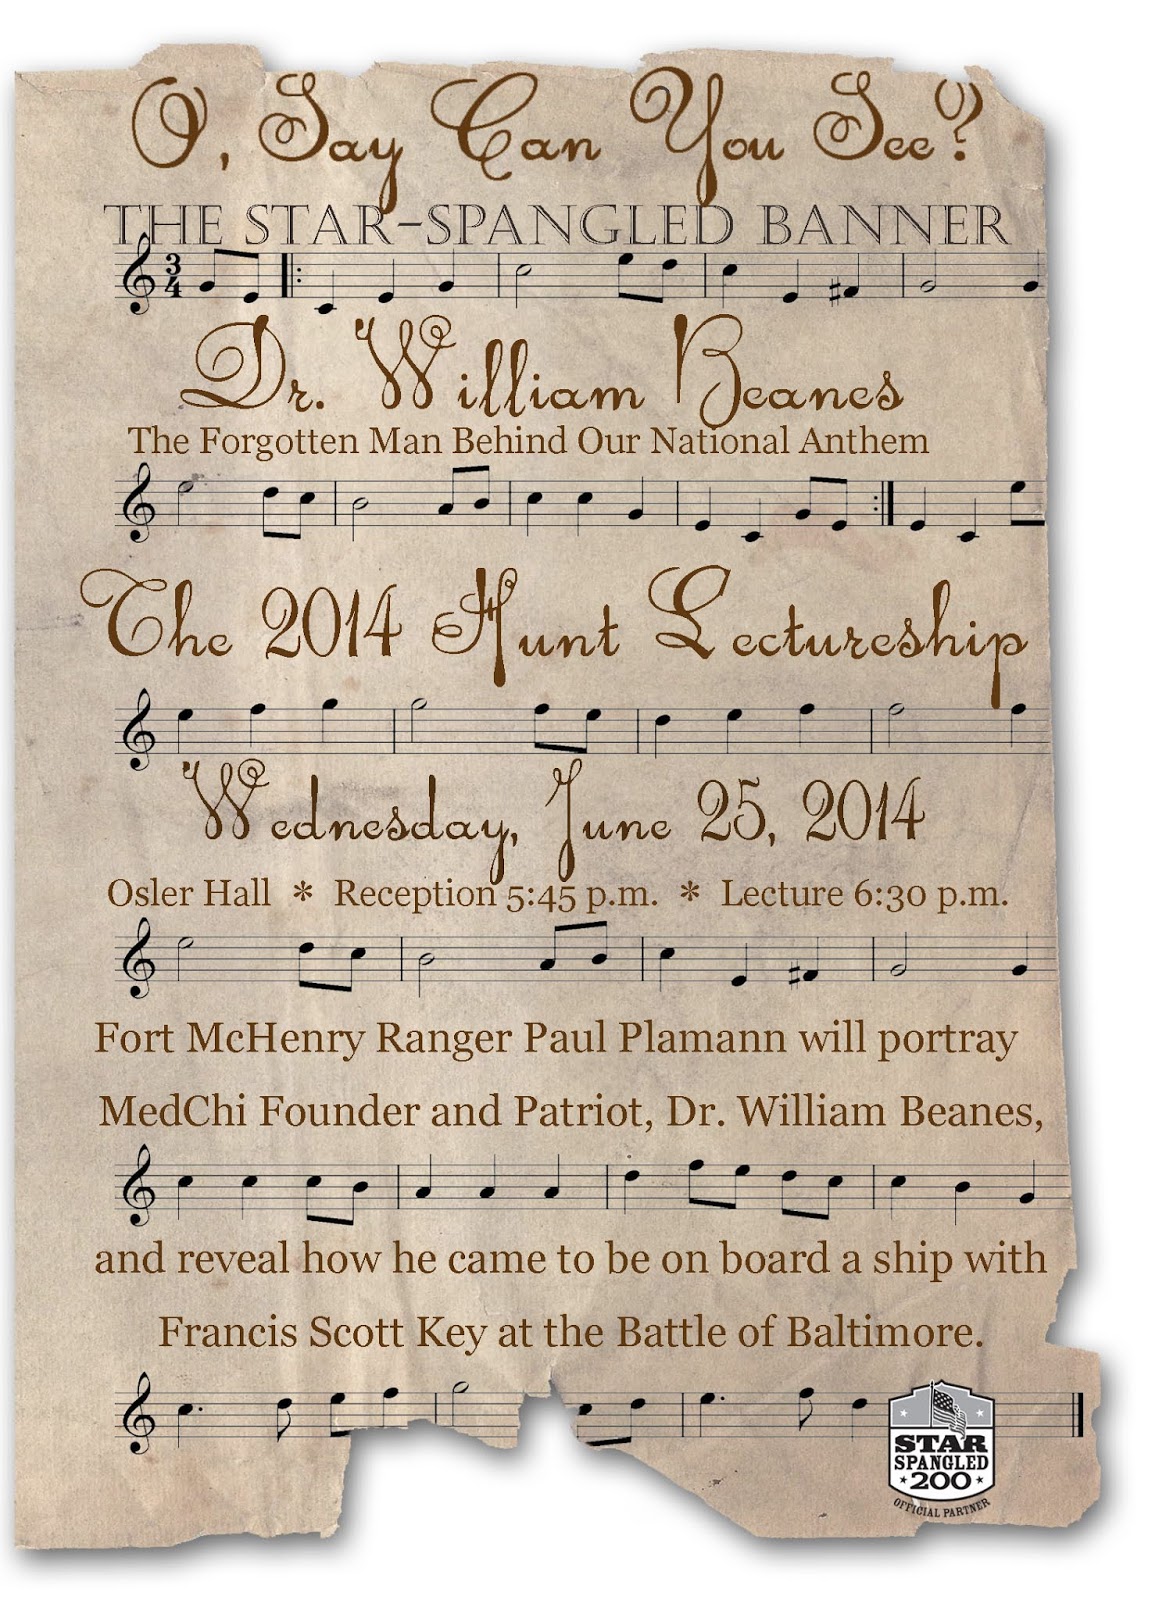 O, Say Can You See?
THE STAR-SPANGLED BANNER
3
4
Dr. William Beanes
The Forgotten Man Behind Our National Anthem
The 2014 Hunt Lectureship
Wednesday, June 25, 2014
Osler Hall * Reception 5:45 p.m. * Lecture 6:30 p.m.
Fort McHenry Ranger Paul Plamann will portray
MedChi Founder and Patriot, Dr. William Beanes,
and reveal how he came to be on board a ship with
Francis Scott Key at the Battle of Baltimore.
STAR
SPANGLED
200
OFFICIAL PARTNER